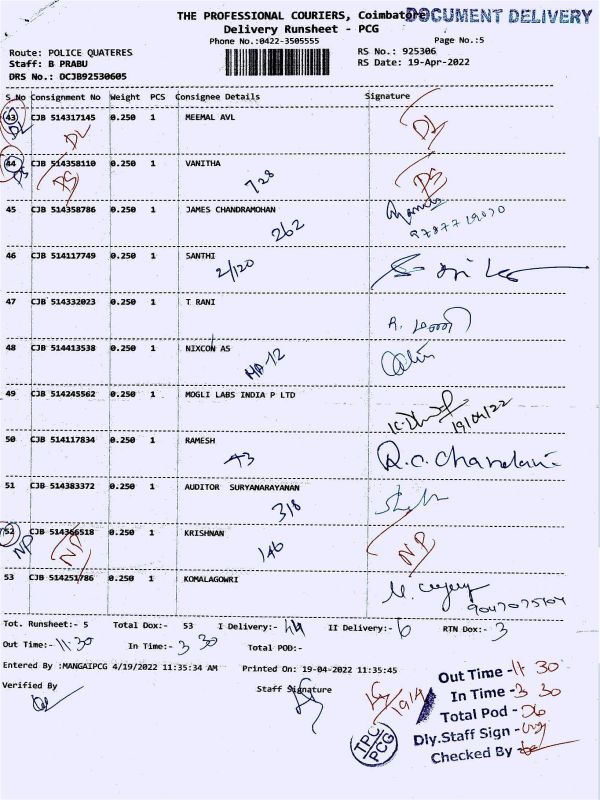 THE PROFESSIONAL COURIERS, Coimbatore
DOCUMENT DELIVERY
Delivery Runsheet - PCG
Phone No.:0422-3505555
Page No.:5
Route: POLICE QUATERES
RS No.: 925306
Staff: B PRABU
RS Date: 19-Apr-2022
DRS No.: DCJB92530605
S No Consignment No Weight PCS Consignee Details Signature
43 CJB 514317145 0.250 1 MEEMAL AVL
DL DL DL
44 CJB 514358110 0.250 1 VANITHA
DS DS DS
728
45 CJB 514358786 0.250 1 JAMES CHANDRAMOHAN
262
46 CJB 514117749 0.250 1 SANTHI
2/120
47 CJB 514332023 0.250 1 T RANI
48 CJB 514413538 0.250 1 NIXCON AS
MA-12
49 CJB 514245562 0.250 1 MOGLI LABS INDIA P LTD
19/04/22
50 CJB 514117834 0.250 1 RAMESH
43
51 CJB 514383372 0.250 1 AUDITOR SURYANARAYANAN
318
52 CJB 514366518 0.250 1 KRISHNAN
NP NP NP
146
53 CJB 514251786 0.250 1 KOMALAGOWRI
Tot. Runsheet:- 5 Total Dox:- 53 I Delivery:- 44 II Delivery:- 6 RTN Dox:- 3
Out Time:- 11-30 In Time:- 3 30 Total POD:-
Entered By :MANGAIPCG 4/19/2022 11:35:34 AM Printed On: 19-04-2022 11:35:45
Verified By
Staff Signature
19/4
Out Time - 11 30
In Time - 3 30
Total Pod -
Dly.Staff Sign -
Checked By -
TPC
PCG